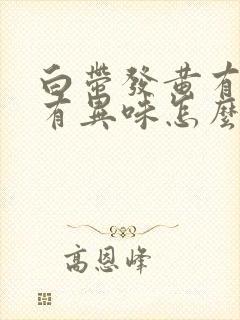 白帶發黃有
有異味怎麼
高恩峰